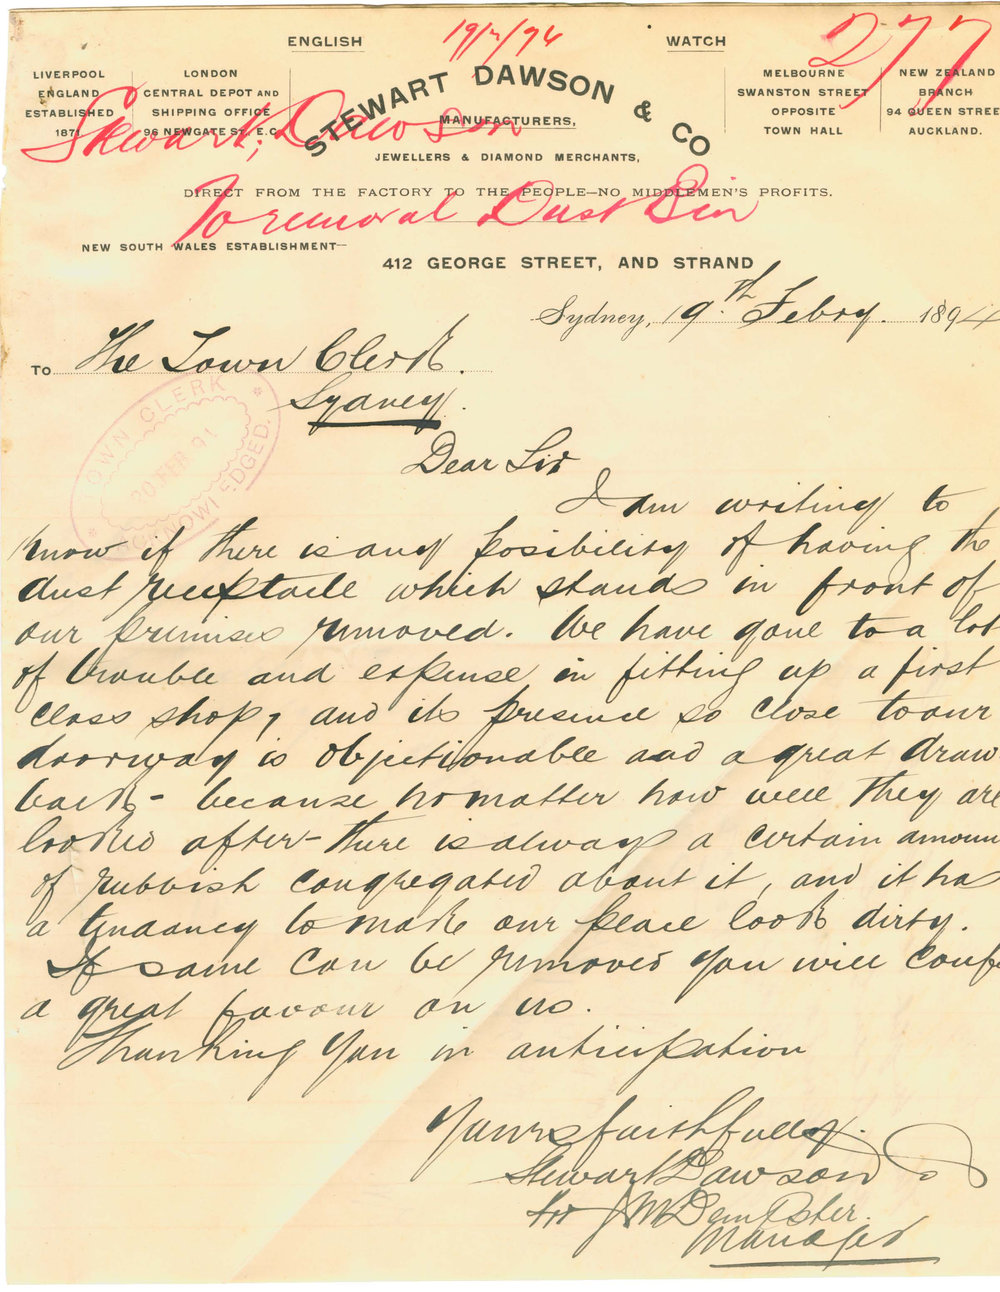 19/2/94
277
ENGLISH
WATCH
STEWART DAWSON & CO
MANUFACTURERS,
JEWELLERS & DIAMOND MERCHANTS,
LIVERPOOL
ENGLAND
ESTABLISHED
1871
LONDON
CENTRAL DEPOT AND
SHIPPING OFFICE
96 NEWGATE ST. E.C.
MELBOURNE
SWANSTON STREET
OPPOSITE
TOWN HALL
NEW ZEALAND
BRANCH
94 QUEEN STREET
AUCKLAND.
Stewart, Dawson
DIRECT FROM THE FACTORY TO THE PEOPLE—NO MIDDLEMEN'S PROFITS.
To removal Dust Bin
NEW SOUTH WALES ESTABLISHMENT—
412 GEORGE STREET, AND STRAND
Sydney, 19th Febry. 1894
To The Town Clerk.
Sydney.
TOWN CLERK
20 FEB
ACKNOWLEDGED.
Dear Sir
I am writing to
know if there is any posibility of having the
dust receptacle which stands in front of
our premises removed. We have gone to a lot
of trouble and expense in fitting up a first
class shop, and its presence so close to our
doorway is objectionable and a great draw-
back - because no matter how well they are
looked after - there is always a certain amoun
of rubbish congregated about it, and it has
a tendancy to make our place look dirty.
If same can be removed you will confe
a great favour on us.
Thanking you in anticipation
Yours faithfully.
Stewart Dawson & Co
for J M Dempster.
Manager